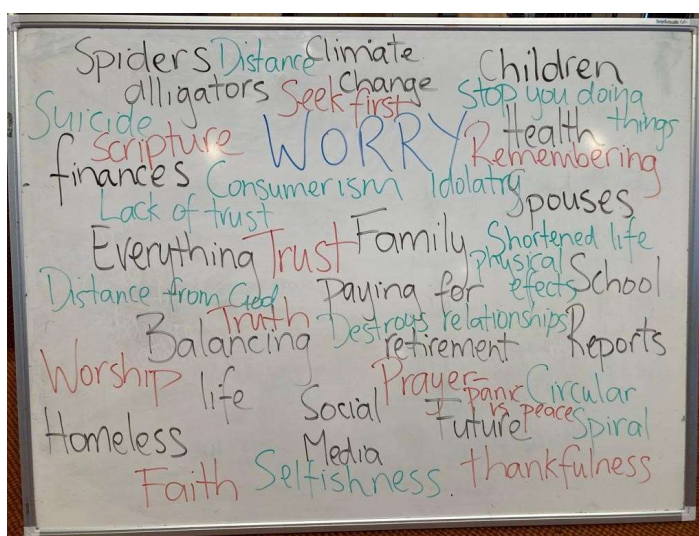 Spiders Distance Climate
alligators Seek first Change Children
Stop you doing
things
Suicide
Scripture WORRY Health
Remembering
finances Consumerism Idolatry
Spouses
Lack of trust
Everything Trust Family Shortened life
physical
efects School
Distance from God paying for
Truth Destroys relationships
Balancing retirement Reports
Worship life Prayer- panic Circular
vs peace Spiral
Social Future
Homeless Media
Faith Selfishness. thankfulness